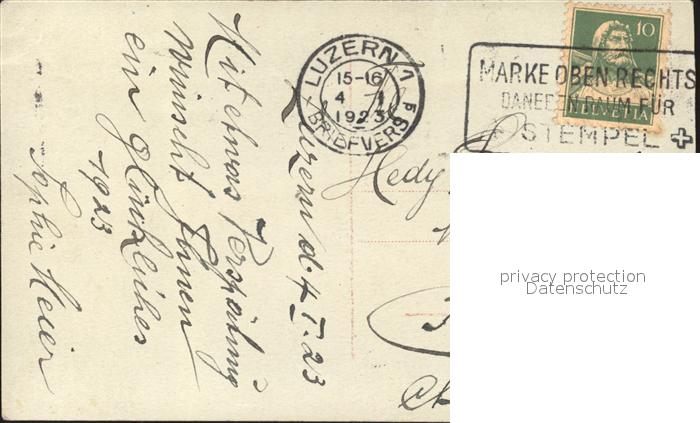 Luzern d. 4 I. 23
Mit etwas Verspätung
wünscht Ihnen
ein glückliches
1923
Sophie Meier
LUZERN 1
15-16
4 I
1923
BRIEFVERS
MARKE OBEN RECHTS
DANEBEN RAUM FÜR
STEMPEL
10
HELVETIA
Hedy
privacy protection
Datenschutz